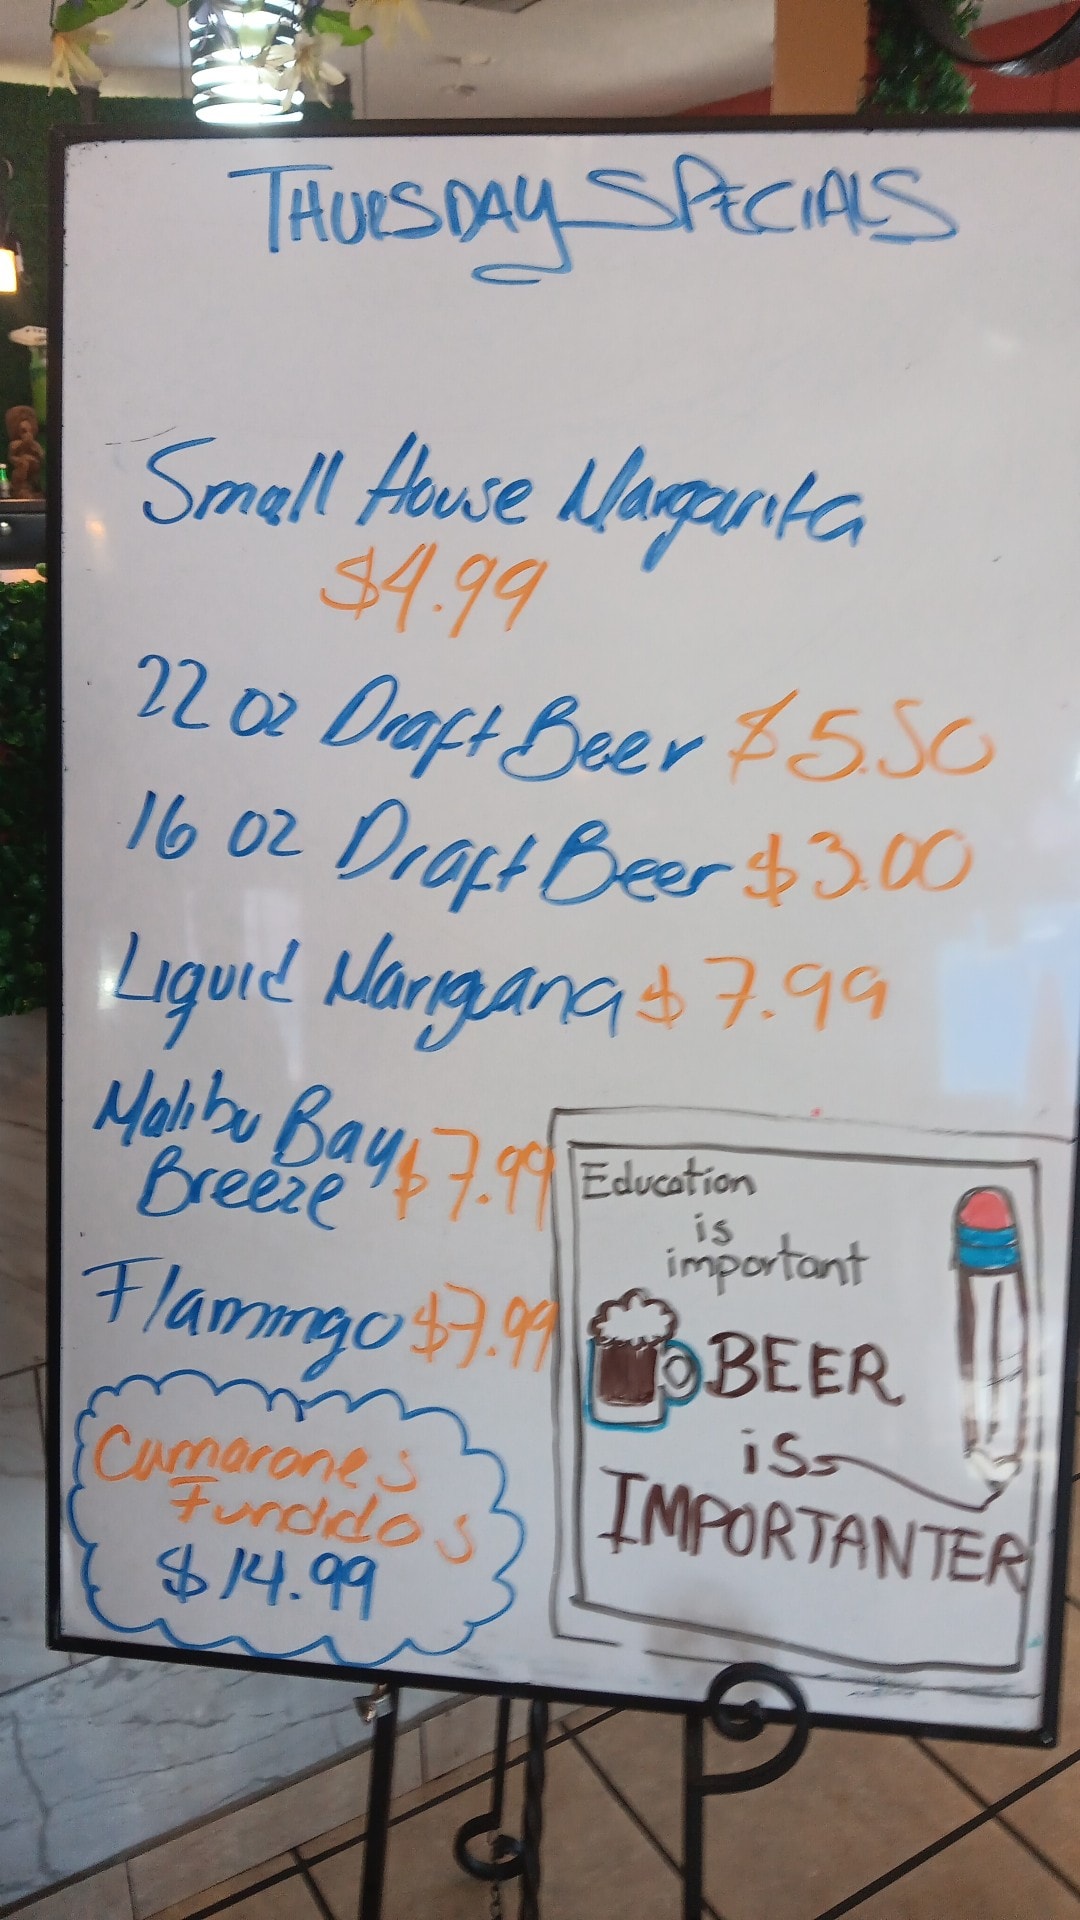 THURSDAY SPECIALS
Small House Margarita
$4.99
22 oz Draft Beer $5.50
16 oz Draft Beer $3.00
Liquid Mariguana $7.99
Malibu Bay
Breeze $7.99
Flamingo $7.99
Camarones
Fundidos
$14.99
Education
is
important
BEER
is
IMPORTANTER